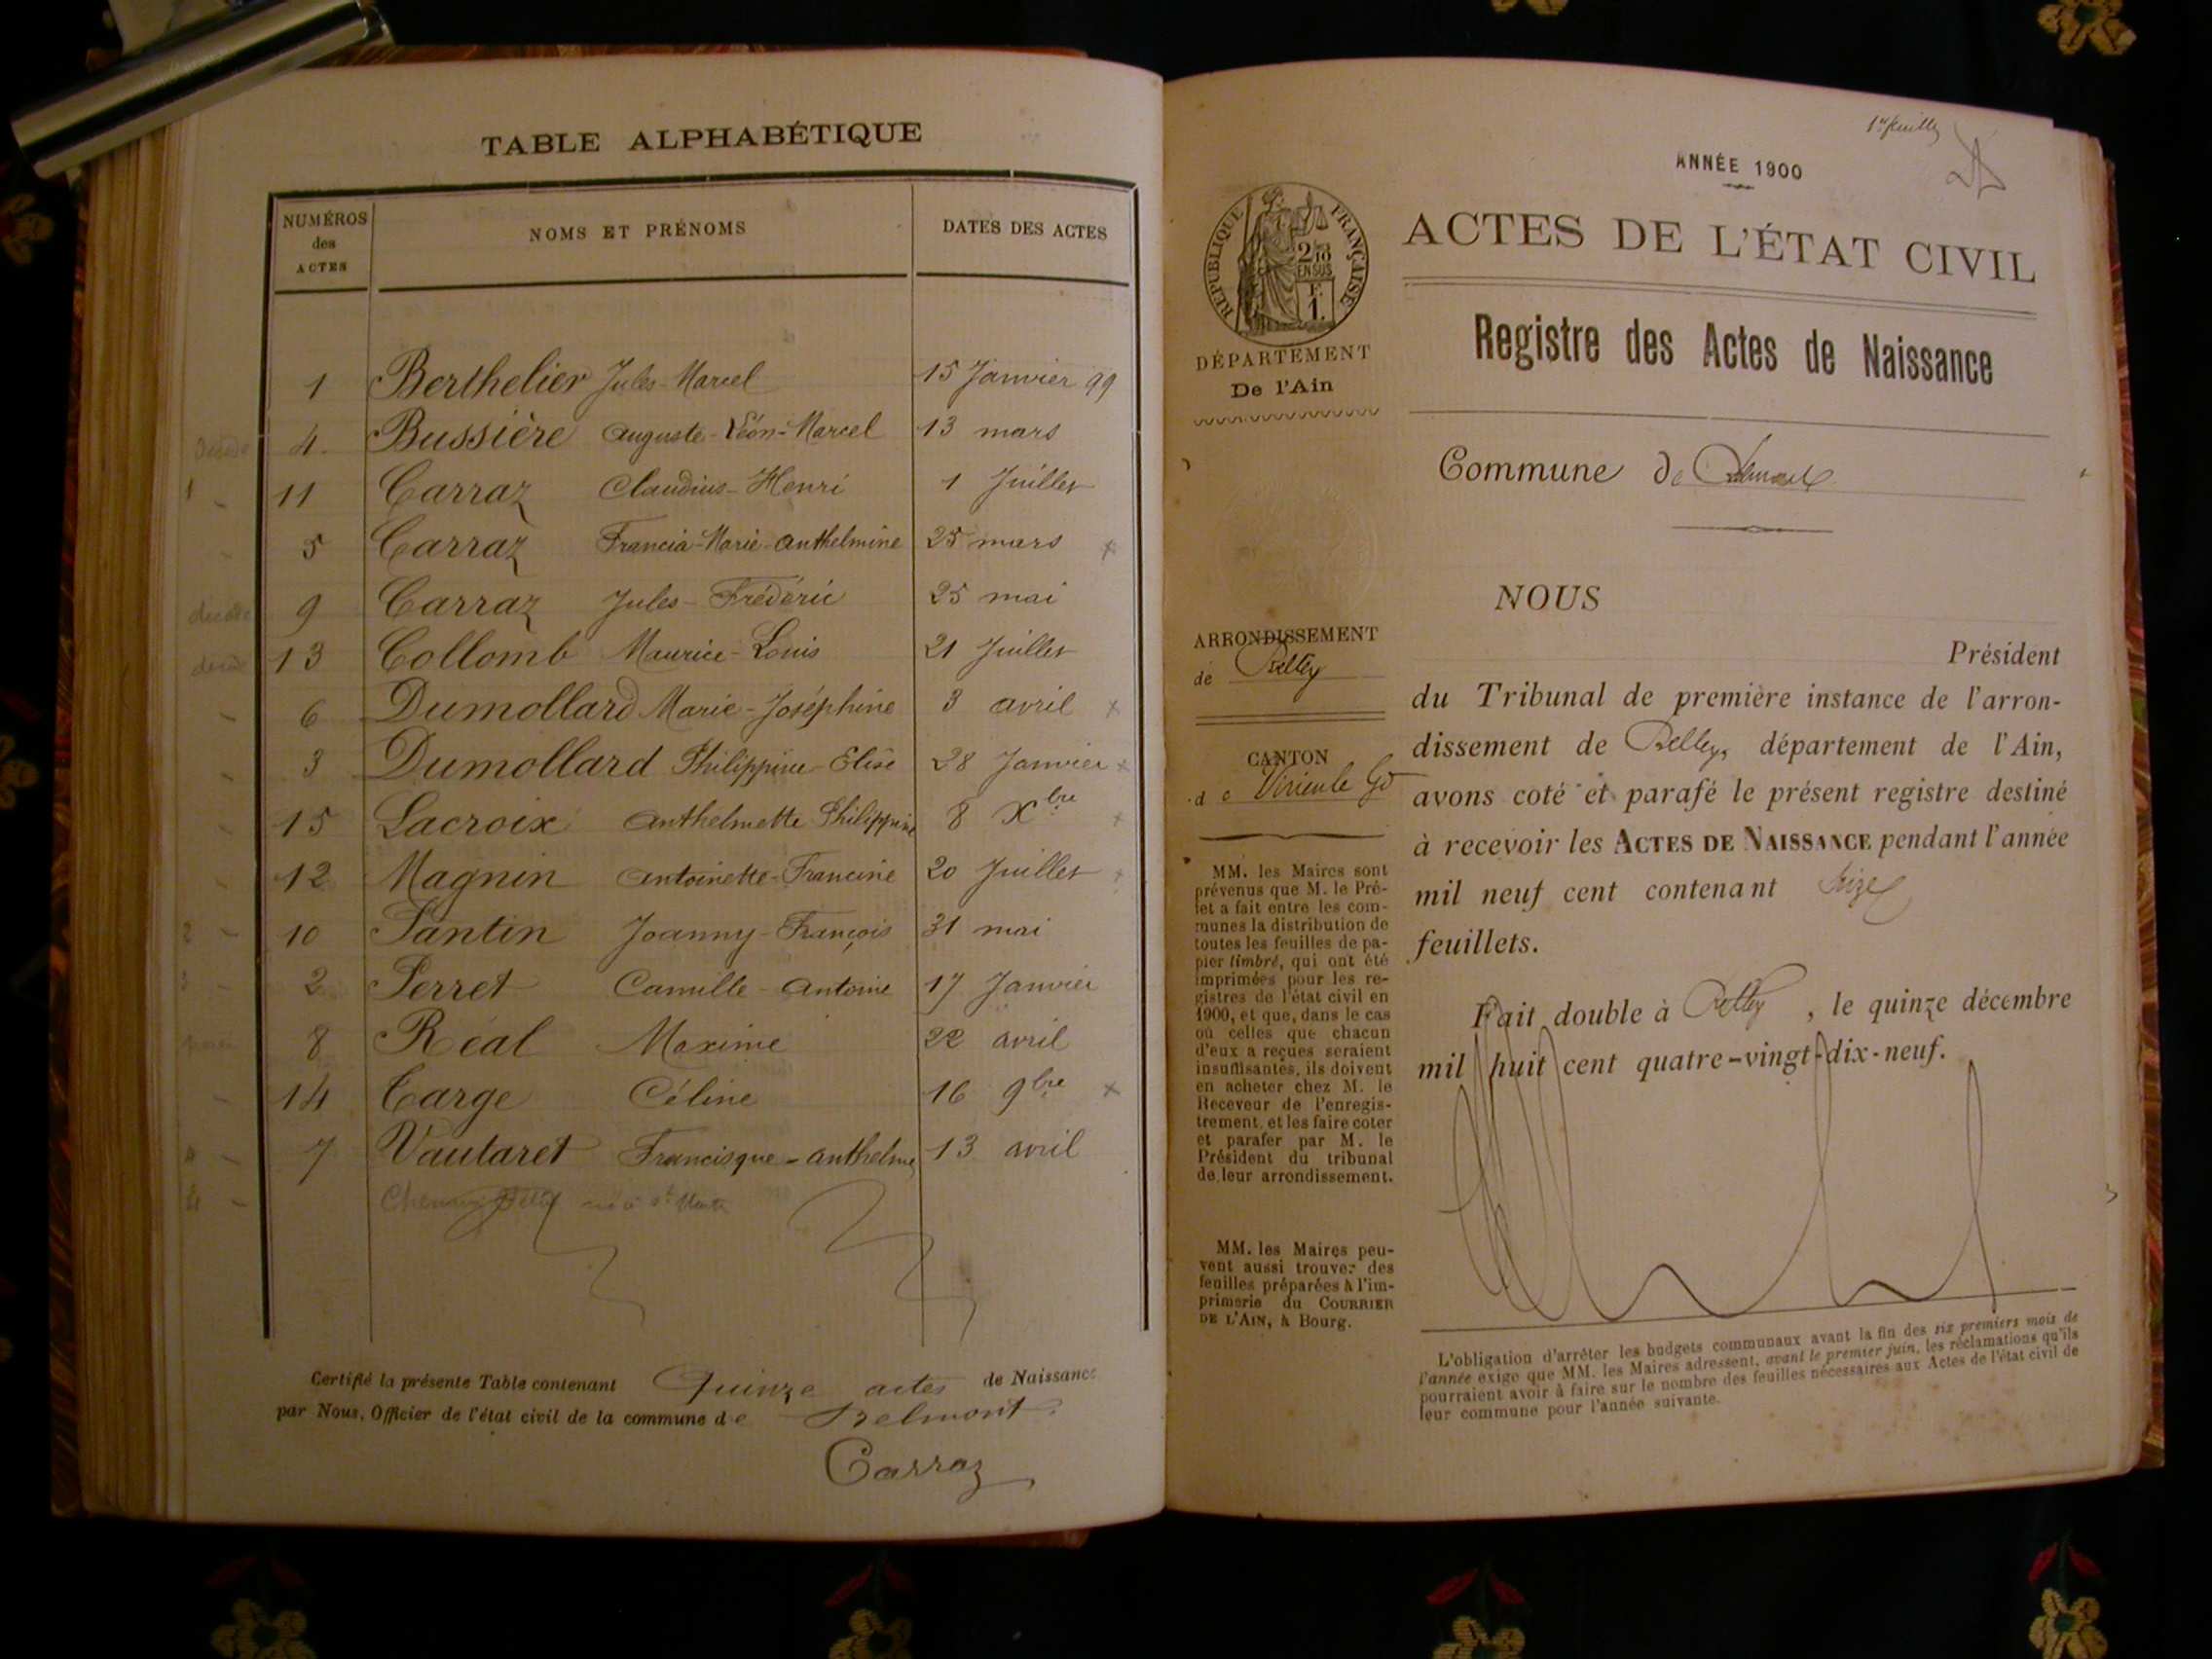 TABLE ALPHABÉTIQUE
NUMÉROS des ACTES NOMS ET PRÉNOMS DATES DES ACTES
1 Berthelier Jules-Marcel 15 Janvier 99
4 Bussière Auguste-Léon-Marcel 13 mars
11 Carraz Claudius-Henri 1 Juillet
5 Carraz Francia-Marie-Anthelmine 25 mars
9 Carraz Jules-Frédéric 25 mai
13 Collomb Maurice-Louis 21 Juillet
6 Dumollard Marie-Joséphine 3 avril
3 Dumollard Philippine-Elise 28 Janvier
15 Lacroix Anthelmette Philippine 8 Xbre
12 Magnin Antoinette-Francine 20 Juillet
10 Pantin Joanny-François 31 mai
2 Perret Camille-Antoine 17 Janvier
8 Réal Maxime 22 avril
14 Targe Céline 16 9bre
7 Vautaret Francisque-Anthelme 13 avril
Certifié la présente Table contenant Quinze actes de Naissance
par Nous, Officier de l'état civil de la commune de Belmont.
Carraz
1er feuillet
ANNÉE 1900
RÉPUBLIQUE FRANÇAISE
2/10 EN SUS
F. 1.
DÉPARTEMENT
De l'Ain
ARRONDISSEMENT
de Belley
CANTON
de Virieu le Gd
MM. les Maires sont
prévenus que M. le Pré-
fet a fait entre les com-
munes la distribution de
toutes les feuilles de pa-
pier timbré, qui ont été
imprimées pour les re-
gistres de l'état civil en
1900, et que, dans le cas
où celles que chacun
d'eux a reçues seraient
insuffisantes, ils doivent
en acheter chez M. le
Receveur de l'enregis-
trement, et les faire coter
et parafer par M. le
Président du tribunal
de leur arrondissement.
MM. les Maires peu-
vent aussi trouver des
feuilles préparées à l'im-
primerie du COURRIER
DE L'AIN, à Bourg.
ACTES DE L'ÉTAT CIVIL
Registre des Actes de Naissance
Commune de Belmont
NOUS
Président
du Tribunal de première instance de l'arron-
dissement de Belley, département de l'Ain,
avons coté et parafé le présent registre destiné
à recevoir les ACTES DE NAISSANCE pendant l'année
mil neuf cent contenant seize
feuillets.
Fait double à Belley, le quinze décembre
mil huit cent quatre-vingt-dix-neuf.
L'obligation d'arrêter les budgets communaux avant la fin des six premiers mois de
l'année exige que MM. les Maires adressent, avant le premier juin, les réclamations qu'ils
pourraient avoir à faire sur le nombre des feuilles nécessaires aux Actes de l'état civil de
leur commune pour l'année suivante.